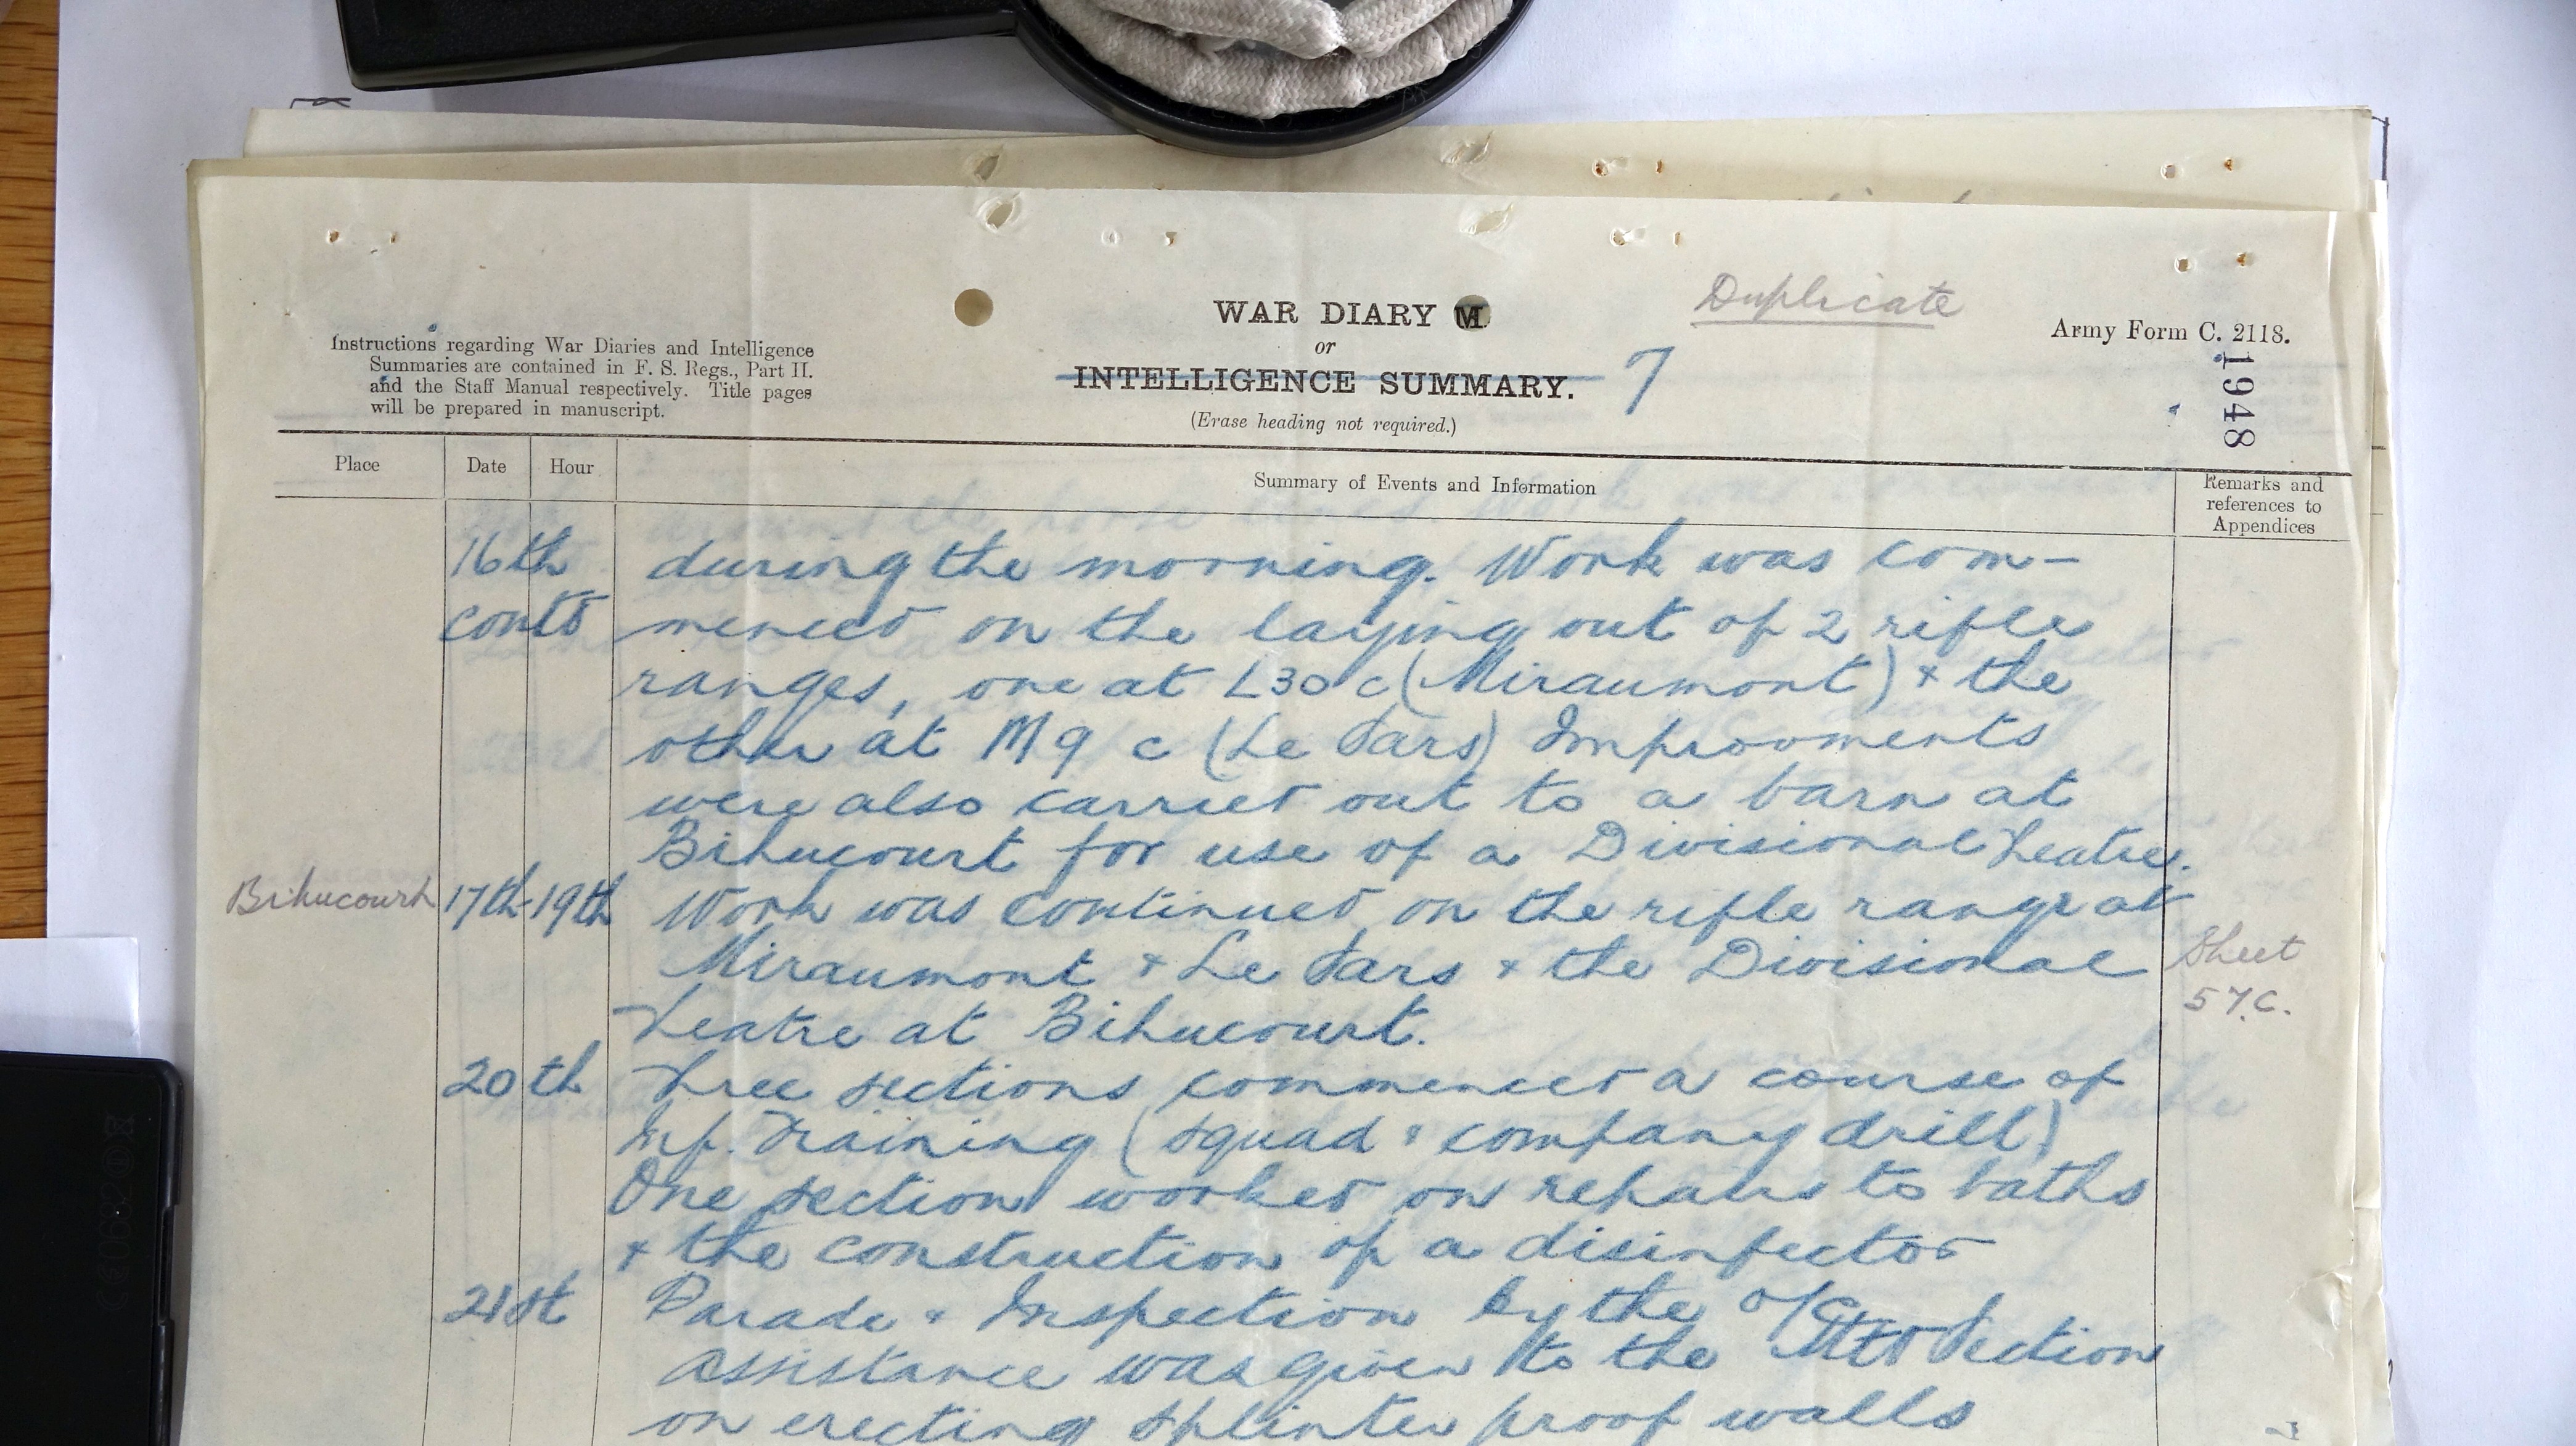 Duplicate
WAR DIARY
Army Form C. 2118.
or
INTELLIGENCE SUMMARY.
7
(Erase heading not required.)
Instructions regarding War Diaries and Intelligence
Summaries are contained in F. S. Regs., Part II.
and the Staff Manual respectively. Title pages
will be prepared in manuscript.
1948
Place Date Hour Summary of Events and Information Remarks and
references to
Appendices
16th during the morning. Work was com-
contd menced on the laying out of 2 rifle
ranges, one at L30c (Miraumont) & the
other at M9 c (Le Sars) Improvments
were also carried out to a barn at
Bihucourt for use of a Divisional Theatre.
Bihucourt 17th-19th Work was continued on the rifle range at
Miraumont & Le Sars & the Divisional Sheet
57.C.
Theatre at Bihucourt.
20th Three sections commenced a course of
Inf. Training (squad & company drill)
One section worked on repairs to baths
& the construction of a disinfector
21st Parade & Inspection by the O/C
assistance was given to the Section
on erecting splinter proof walls